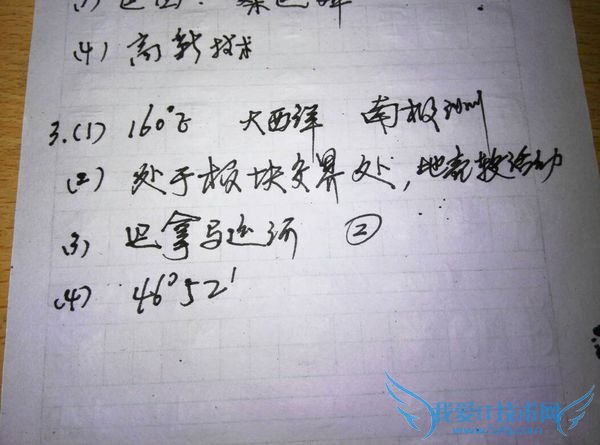 (4) 高新技术
3.(1) 160°E 大西洋 南极洲
(2) 处于板块交界处,地壳较活动
(3) 巴拿马运河 ②
(4) 46°52′
我爱IT技术网